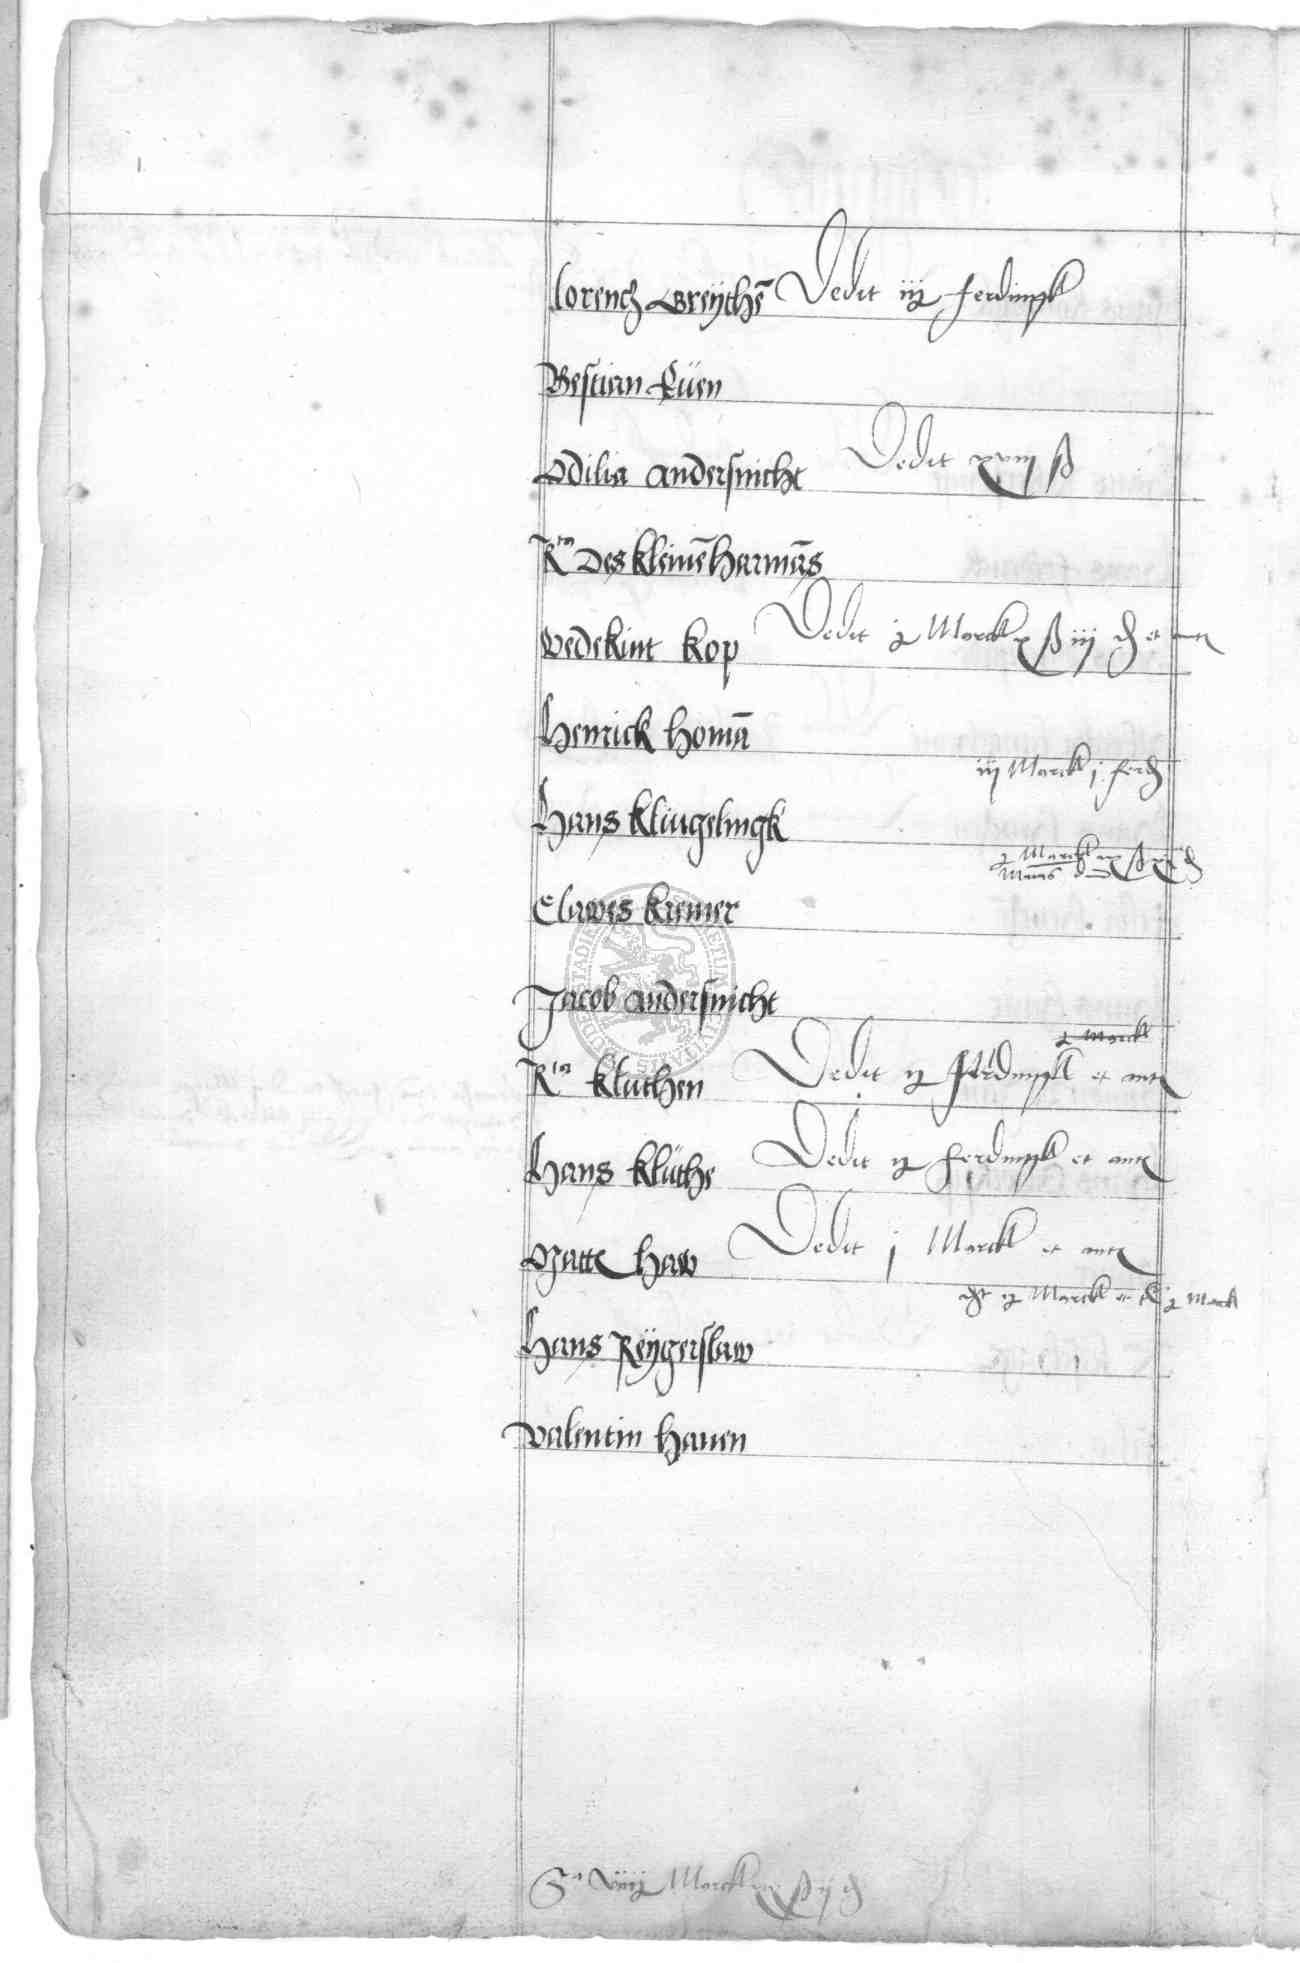 Lorencz Greÿthē Dedit iij ferdingk
Bestian Lüen
Odilia andersnicht Dedit xviij ß
Rta Des kleinē Harmēs
Wedekint kop Dedit Marck ß iij ₰ et
Henrick homā
iij Marck j ferd
Hans Klingelingk
Marck ß ₰
Clawes kremer
Jacob andersnicht
Marck
Rta kluthen Dedit ij ferdingk et
Hans klüthe Dedit ij ferdingk et
Matte haw Dedit j Marck et
ij Marck et Marck
Hans Reÿgerslaw
Valentin hauen
Sa Marck ß ij ₰